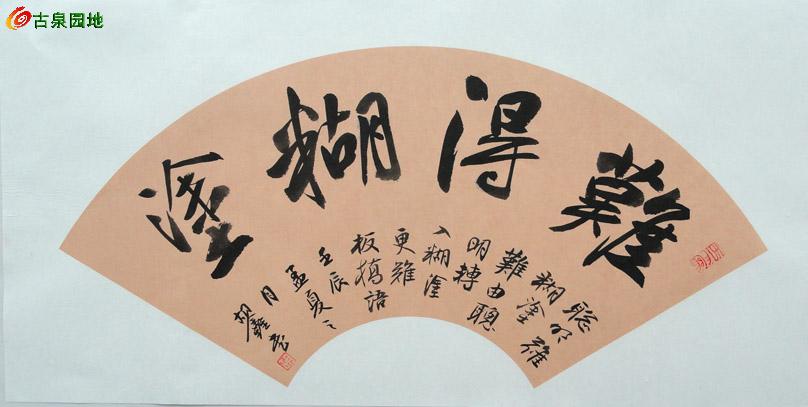 古泉园地
難得糊塗
聪明難
糊塗
難由聰
明轉
入糊塗
更難
板橋語
壬辰
孟夏之
月